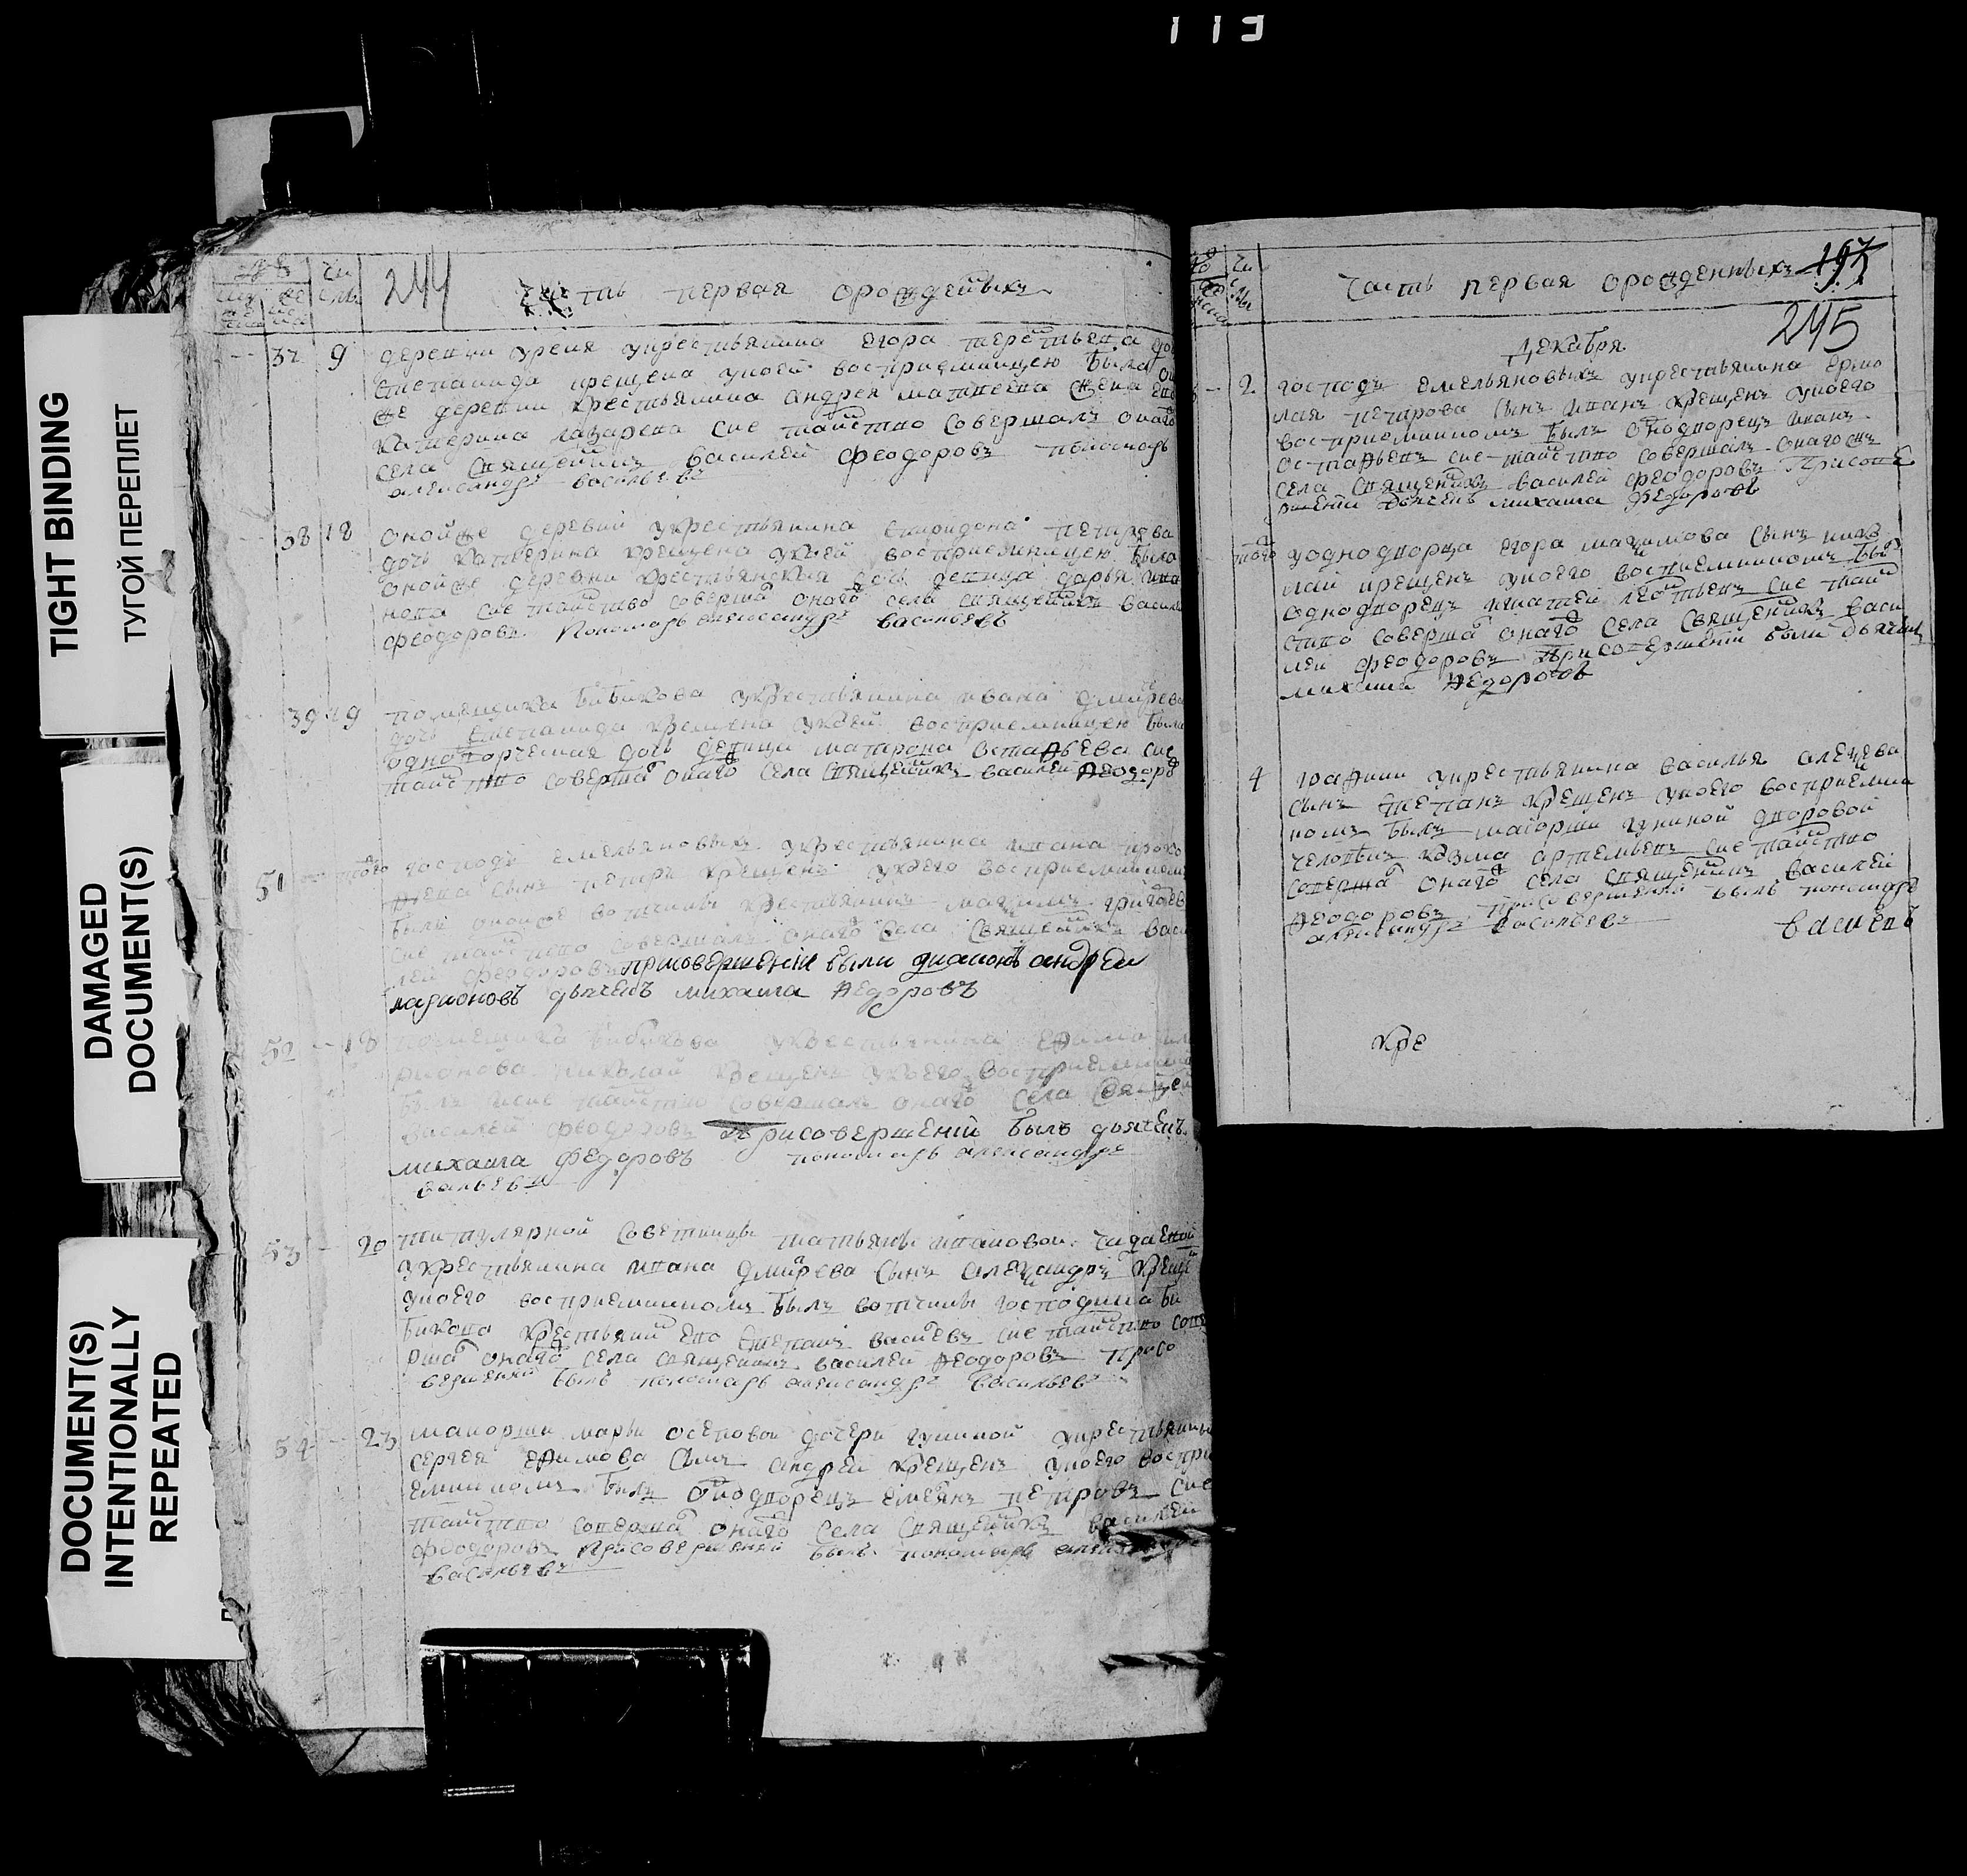 113
TIGHT BINDING
ТУГОЙ ПЕРЕПЛЕТ
DAMAGED
DOCUMENT(S)
DOCUMENT(S)
INTENTIONALLY
REPEATED
244
Часть первая о рожденыхъ
37 9 деревни крестьянина Егора дочь
Степанида крещена у коей восприемницею была он
же деревни крестьянина андрея матвеева жена его
катерина лазарева сие таиство совершалъ онаго
села священикъ василей феодоровъ пономарь
александръ васильевъ
38 18 оной же деревни у крестьянина спиридона петрова
дочь катерина крещена у коей восприемницею была
оной же деревни крестьянская дочь девица дарья ива
нова сие таиство соверша онаго села священикъ васил
феодоровъ пономарь александръ васильевъ
39 19 помещика бибикова у крестьянина ивана дмитрева
дочь степанида крещена у коей восприемницею была
дочь девица матрона остафьева сие
таиство соверша онаго села священикъ василей феодоро
51 того господъ емельяновыхъ у крестьянина ивана
сынъ петръ крещенъ у коего восприемником
былъ оной же вотчины крестьянинъ максимъ григорев
сие таиство совершалъ онаго села священикъ васи
лей феодоровъ присовершении были диаконъ андреи
ларионовъ дьячекъ михаила федоровъ
52 18 помещика бибикова у крестьянина ефима ила
рионова николай крещенъ у коего восприемником
былъ сие таиство совершалъ онаго села свящей
василей феодоровъ при совершении былъ дьячекъ
михаила федоровъ пономарь александръ
53 20 титулярной советницы татьяны ивановой
у крестьянина ивана дмитрева сынъ александръ креще
у коего восприемникомъ былъ вотчины господина би
бикова крестьянин ево степанъ васильевъ сие таиство сове
рша онаго села священикъ василей феодоровъ присо
вершении былъ пономарь александръ васильевъ
54 23 маиорши марьи осеповой дочери гуниной у крестьянина
сергея ефимова сынъ андрей крещенъ у коего воспри
емникомъ былъ однодворецъ емельянъ петровъ сие
таиство соверша онаго села священикъ василей
феодоровъ присовершении былъ пономарь александръ
васильевъ
Часть первая о рожденныхъ 197
245
Декабря
2 господъ емельяновыхъ у крестьянина ермо
лая петрова сынъ иванъ крещенъ у коего
восприемникомъ былъ однодворецъ иванъ
остафьевъ сие таиство совершалъ онаго
села священикъ василей феодоровъ присове
ршении дьячекъ михаила федоровъ
того у однодворца егора максимова сынъ нико
лай крещенъ у коего восприемникомъ былъ
однодворецъ игнатей леонтьевъ сие таи
ство соверша онаго села священикъ васи
лей феодоровъ при совершении были дьячекъ
михаила федоровъ
4 у крестьянина василья алексева
сынъ степанъ крещенъ у коего восприемни
комъ былъ маиорши гуниной дворовой
человекъ козма артемьевъ сие таиство
соверша онаго села священикъ василей
феодоровъ присовершении былъ пономарь
александръ васильевъ
кре